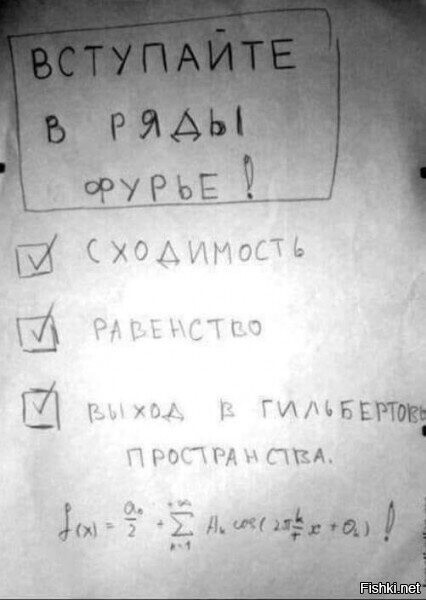 ВСТУПАЙТЕ
В РЯДЫ
ФУРЬЕ!
СХОДИМОСТЬ
РАВЕНСТВО
ВЫХОД В ГИЛЬБЕРТОВЫ
ПРОСТРАНСТВА.
f(x) = a₀/2 + ∑_{k=1}^{+∞} Aₖ cos(2π k/T x + θₖ) !
Fishki.net